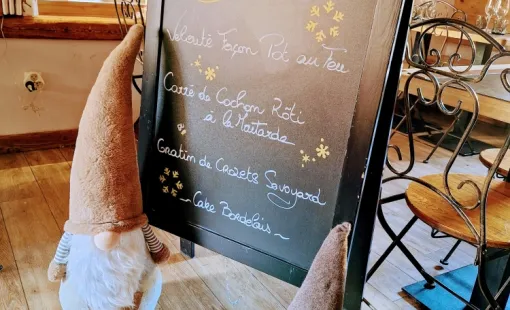 Velouté Façon Pot au Feu
Carré de Cochon Rôti
à la Moutarde
Gratin de Crozets Savoyard
~ Cake Bordelais ~